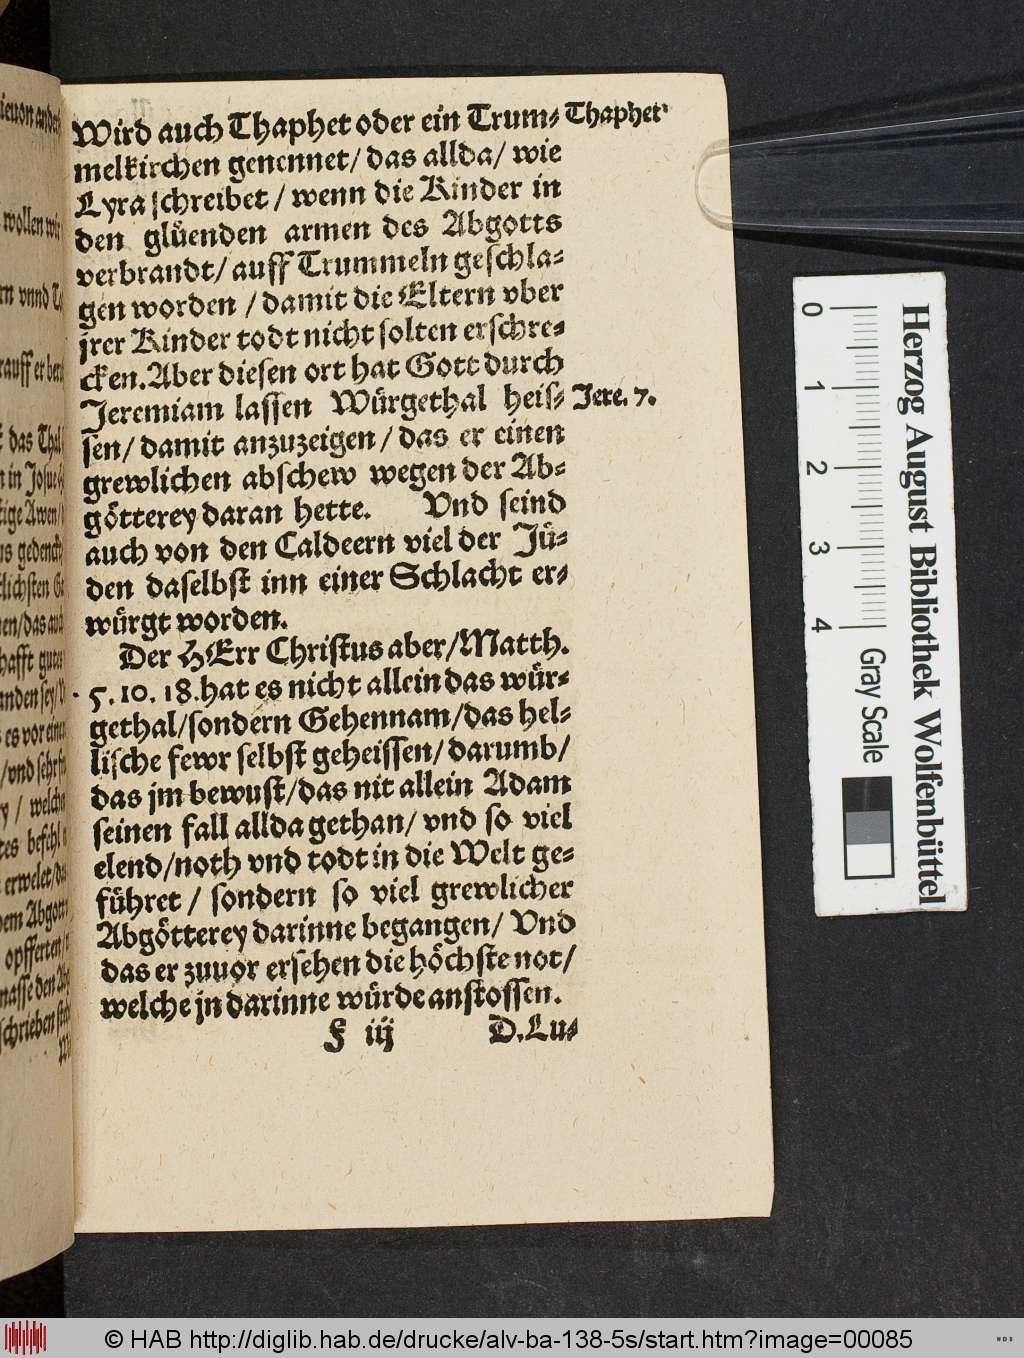 Wird auch Thaphet oder ein Trum⸗ Thaphet
melkirchen genennet/ das allda/ wie
Lyra schreibet / wenn die Kinder in
den glůenden armen des Abgotts
verbrandt/ auff Trummeln geschla⸗
gen worden / damit die Eltern vber
jrer Kinder todt nicht solten erschre⸗
cken. Aber diesen ort hat Gott durch
Jeremiam lassen Würgethal heis⸗ Jere. 7.
sen/ damit anzuzeigen / das er einen
grewlichen abschew wegen der Ab⸗
götterey daran hette. Vnd seind
auch von den Caldeern viel der Jü⸗
den daselbst inn einer Schlacht er⸗
würgt worden.
Der HErr Christus aber/ Matth.
5. 10. 18. hat es nicht allein das wür⸗
gethal/ sondern Gehennam/ das hel⸗
lische fewr selbst geheissen/ darumb/
das jm bewust/ das nit allein Adam
seinen fall allda gethan/ vnd so viel
elend/ noth vnd todt in die Welt ge⸗
führet / sondern so viel grewlicher
Abgötterey darinne begangen/ Vnd
das er zuuor ersehen die höchste not/
welche jn darinne würde anstossen.
F iij D. Lu⸗
wollen wir
das Thal
in Josue
gedenck
das auch
befehl
erwelet/ da
opfferten/
nasse den Abg
schrieben
0 1 2 3 4
Gray Scale
Herzog August Bibliothek Wolfenbüttel
© HAB http://diglib.hab.de/drucke/alv-ba-138-5s/start.htm?image=00085